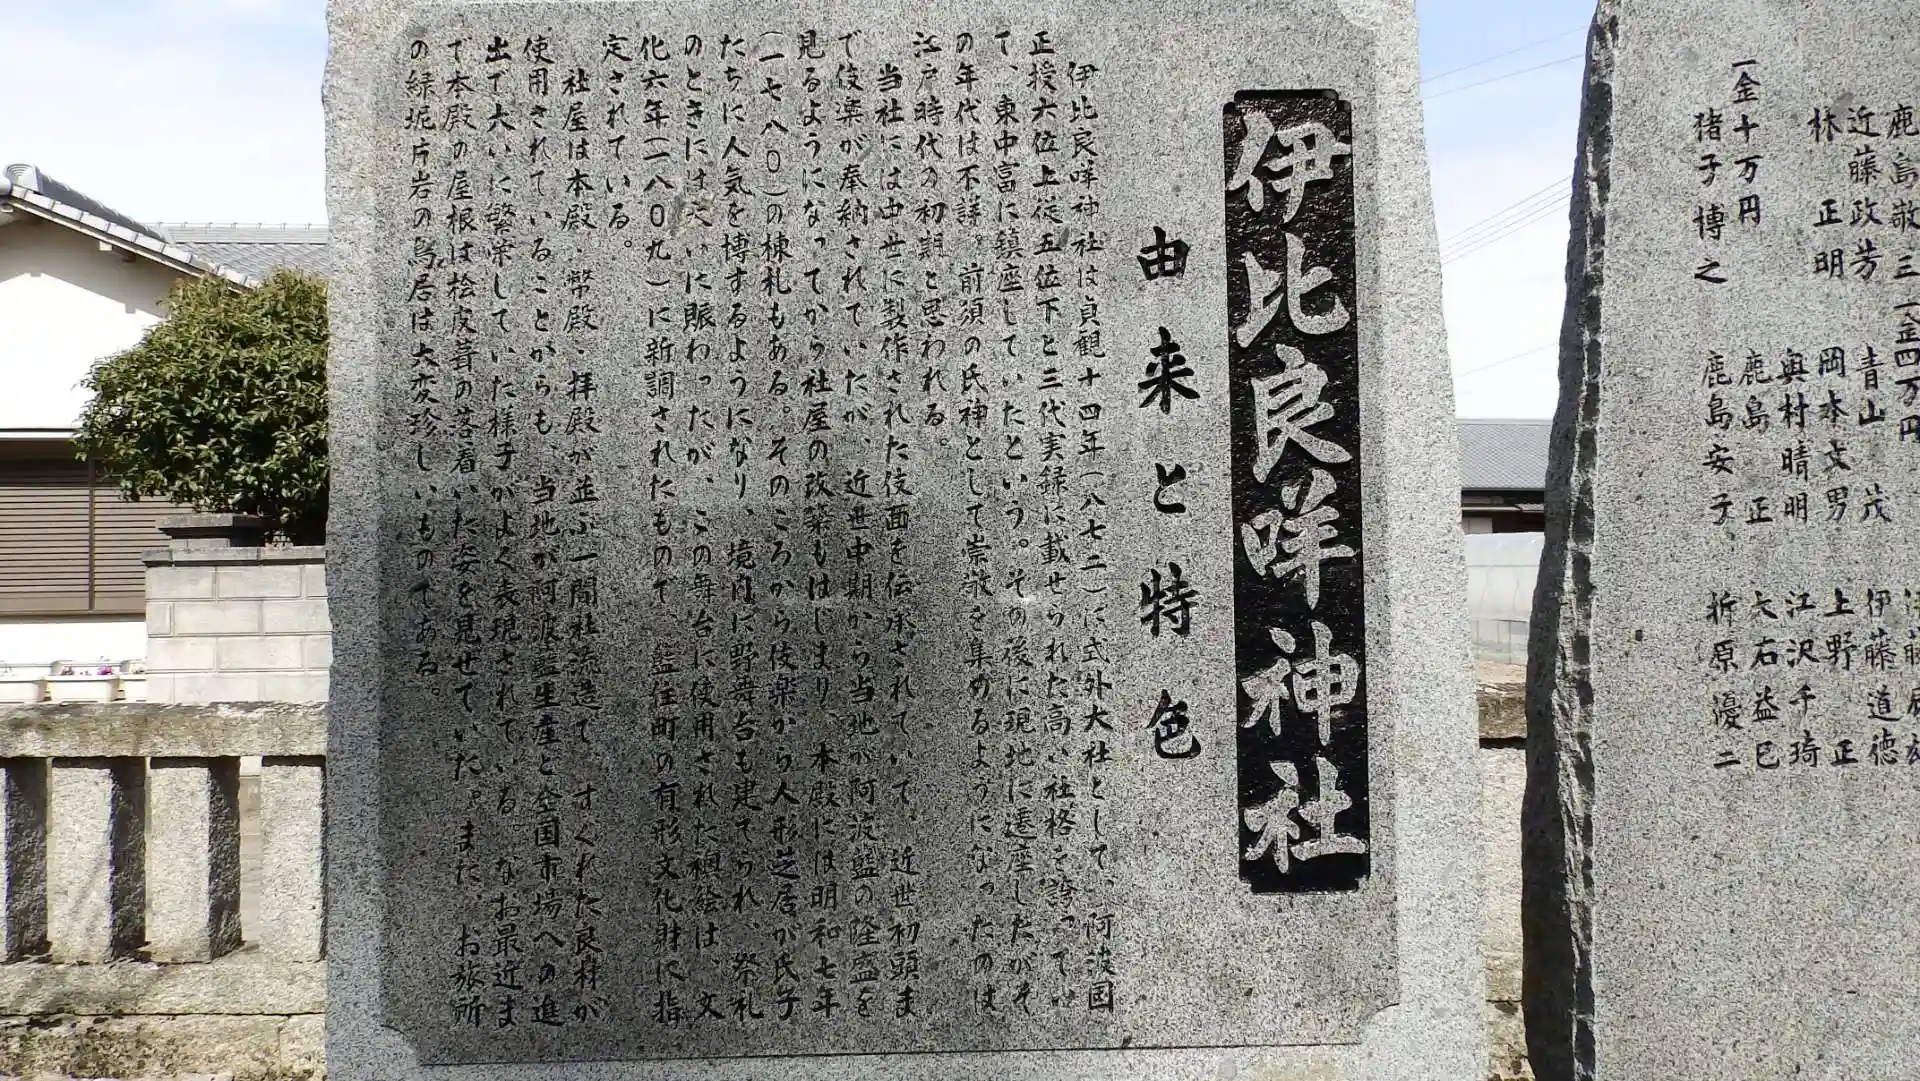 伊比良咩神社
由来と特色
伊比良咩神社は貞観十四年(八七二)に式外大社として、阿波国
正授六位上従五位下と三代実録に載せられた高い社格を誇ってい
て、東中富に鎮座していたという。その後に現地に遷座したがそ
の年代は不詳。前須の氏神として崇敬を集めるようになったのは
江戸時代の初期と思われる。
当社には中世に製作された伎面を伝承されていて、近世初頭ま
で伎楽が奉納されていたが、近世中期から当地が阿波藍の隆盛を
見るようになってから社屋の改築もはじまり、本殿には明和七年
(一七八〇)の棟札もある。そのころから伎楽から人形芝居が氏子
たちに人気を博するようになり、境内に野舞台も建てられ、祭礼
のときには大いに賑わったが、この舞台に使用された襖絵は、文
化六年(一八〇九)に新調されたもので、藍住町の有形文化財に指
定されている。
社屋は本殿、幣殿、拝殿が並ぶ一間社流造で、すぐれた良材が
使用されていることからも、当地が阿波藍生産と全国市場への進
出で大いに繁栄していた様子がよく表現されている。なお最近ま
で本殿の屋根は桧皮葺の落着いた姿を見せていた。また、お旅所
の緑泥片岩の鳥居は大変珍しいものである。
鹿島敬三
近藤政芳
林 正明
一金十万円
猪子博之
一金四万円
青山 茂
岡本文男
奥村晴明
鹿島 正
鹿島安子
伊藤道徳
上野 正
江沢千琦
大石益巳
折原優二